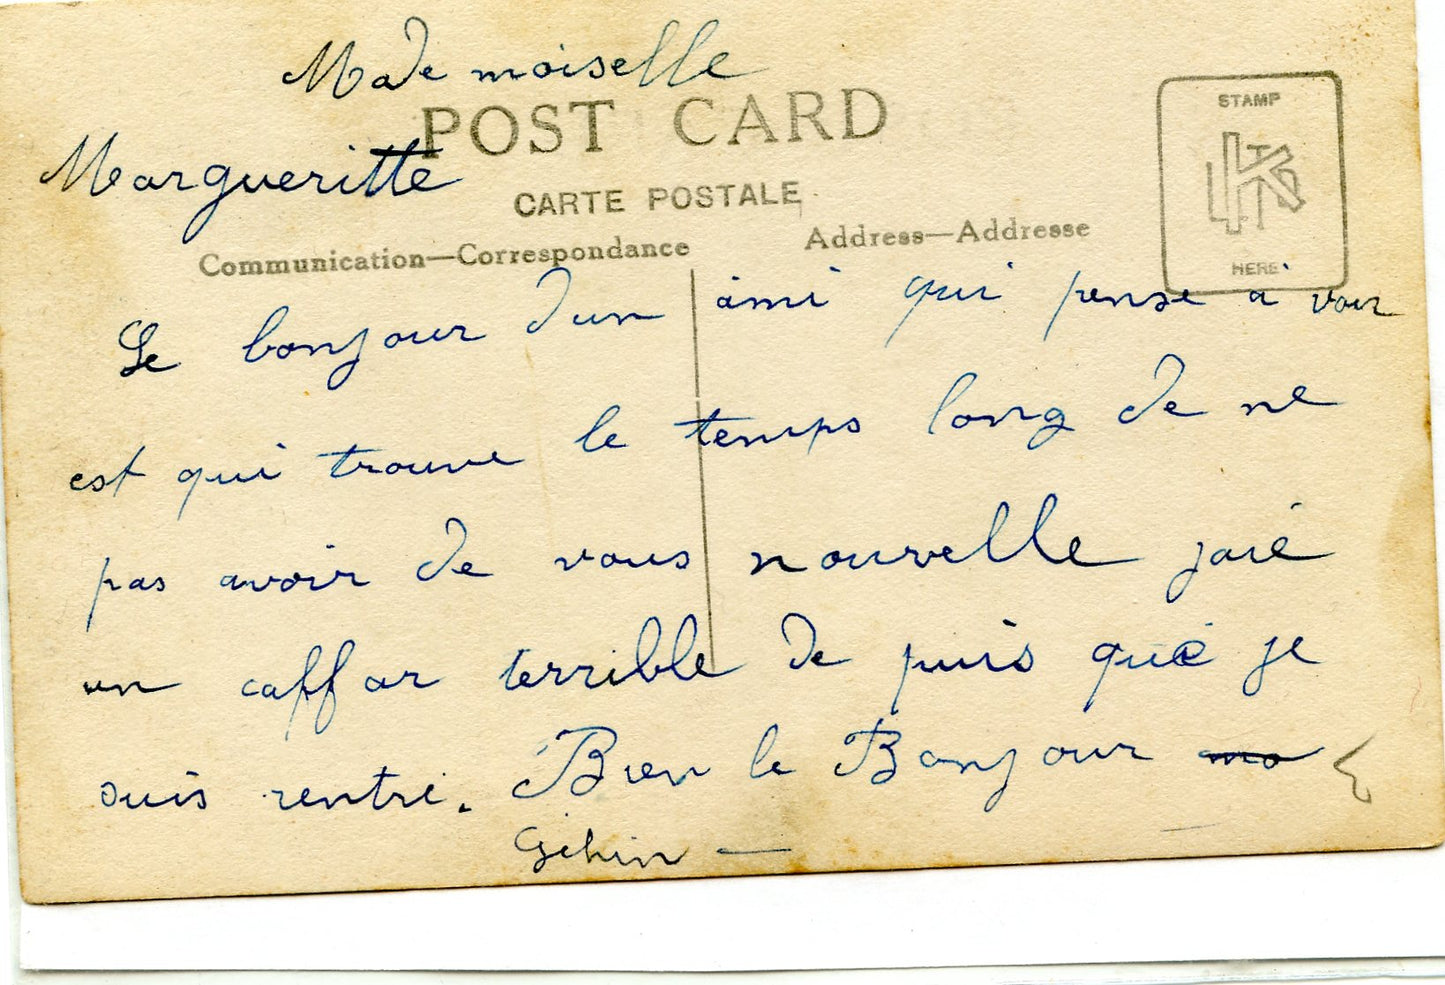 Mademoiselle
POST CARD
Margueritte
CARTE POSTALE
Communication—Correspondance
Address—Addresse
STAMP
HERE
Le bonjour dun ami qui pense a voir
est qui trouve le temps long de ne
pas avoir de vous nouvelle jaie
un caffar terrible de puis que je
suis rentré. Bien le Bonjour
Géhin —